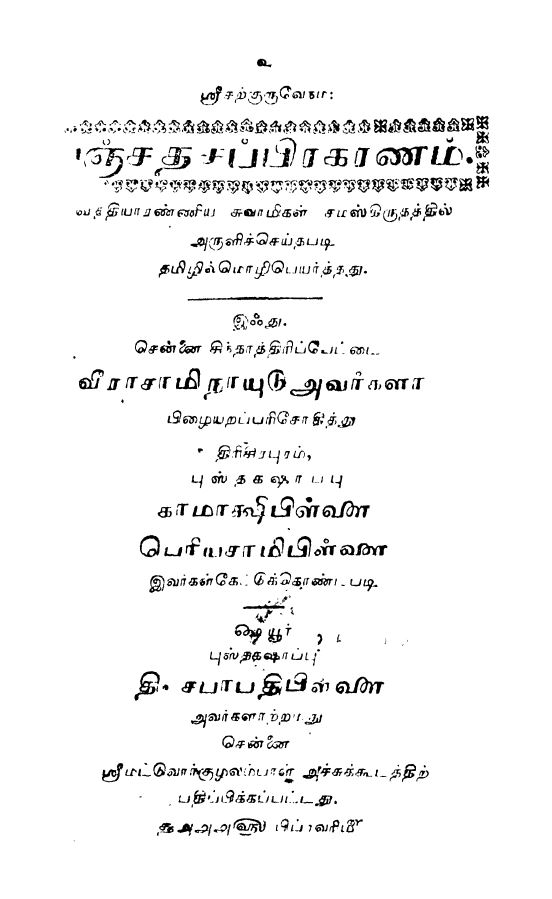 உ
ஸ்ரீசற்குருவேநம:
பஞ்சதசப்பிரகரணம்.
வித்தியாரண்ணிய சுவாமிகள் சமஸ்கிருதத்தில்
அருளிச்செய்தபடி
தமிழில்மொழிபெயர்த்தது.
இஃது.
சென்னை சிந்தாத்திரிப்பேட்டை
வீராசாமிநாயுடுஅவர்களா
பிழையறப்பரிசோதித்து
திரிசிரபுரம்,
புஸ்தகஷாப்பு
காமாக்ஷிபிள்ளை
பெரியசாமிபிள்ளை
இவர்கள்கேட்டுக்கொண்டபடி
ஷையூர்
புஸ்தகஷாப்பு
தி. சபாபதிபிள்ளை
அவர்களாற்றமது
சென்னை
ஸ்ரீமட்டுவார்குழலம்பாள் அச்சுக்கூடத்திற்
பதிப்பிக்கப்பட்டது.
௧௮௮௮௵ பிப்ரவரி௴